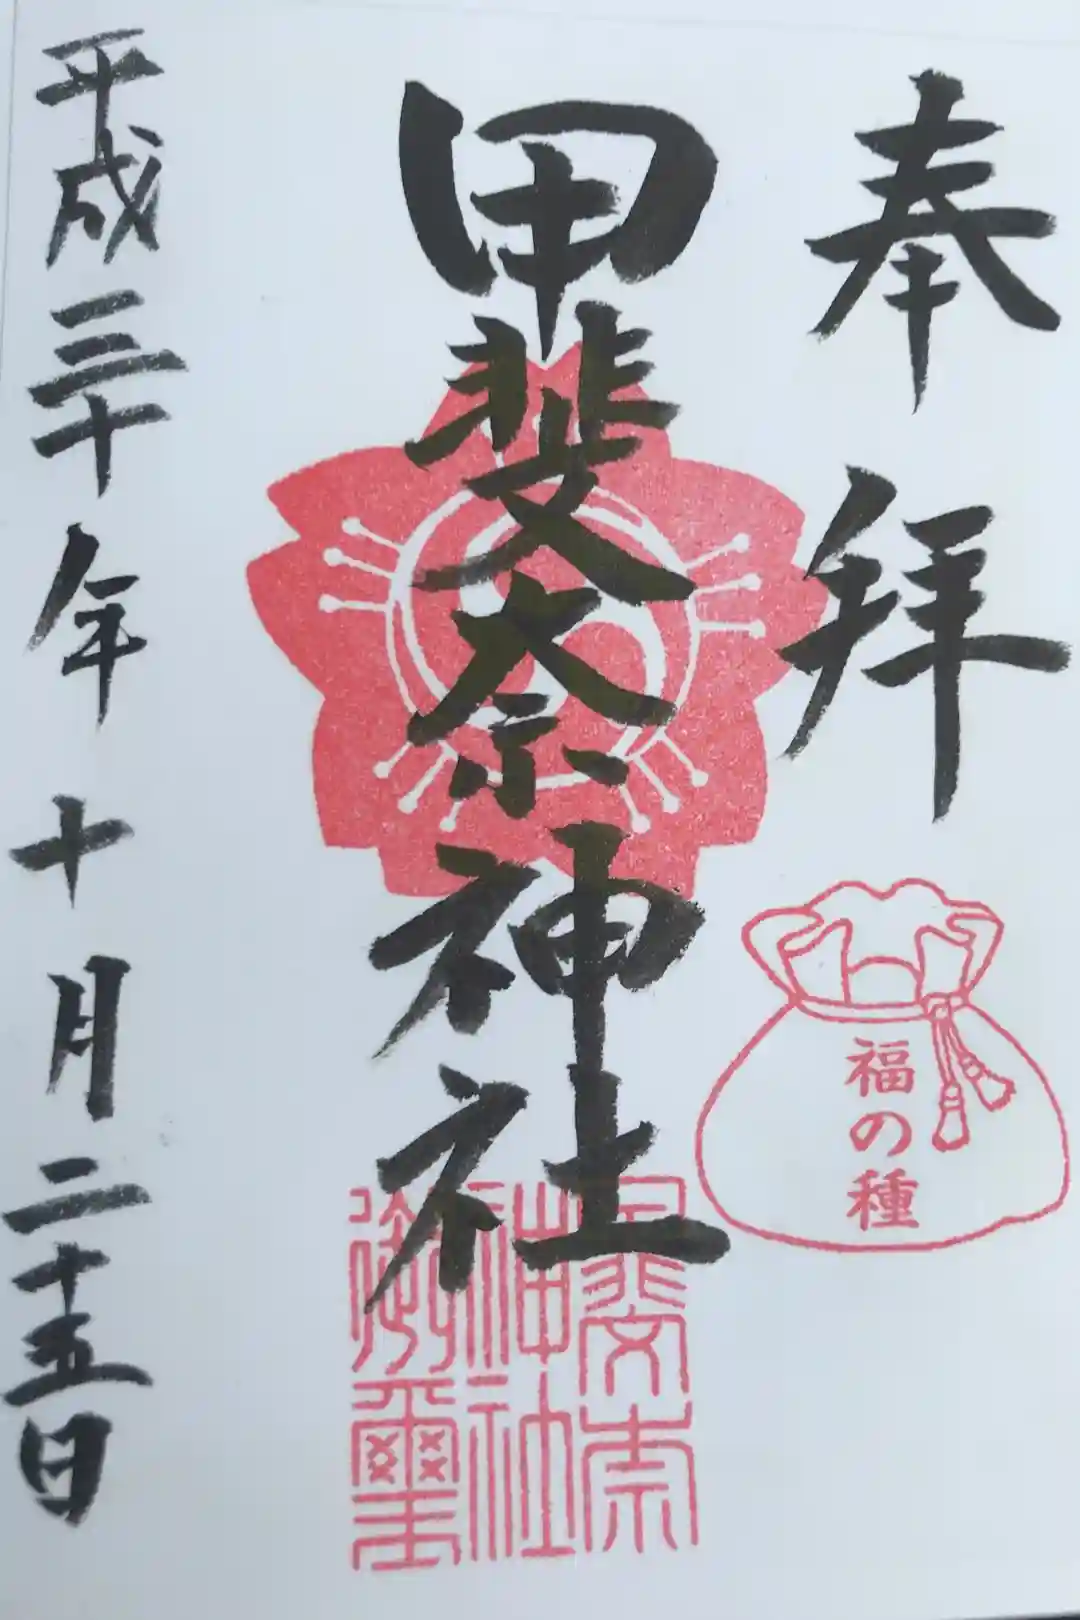 奉拝
福の種
甲斐奈神社
甲斐奈
神社
御璽
平成三十年十月二十五日